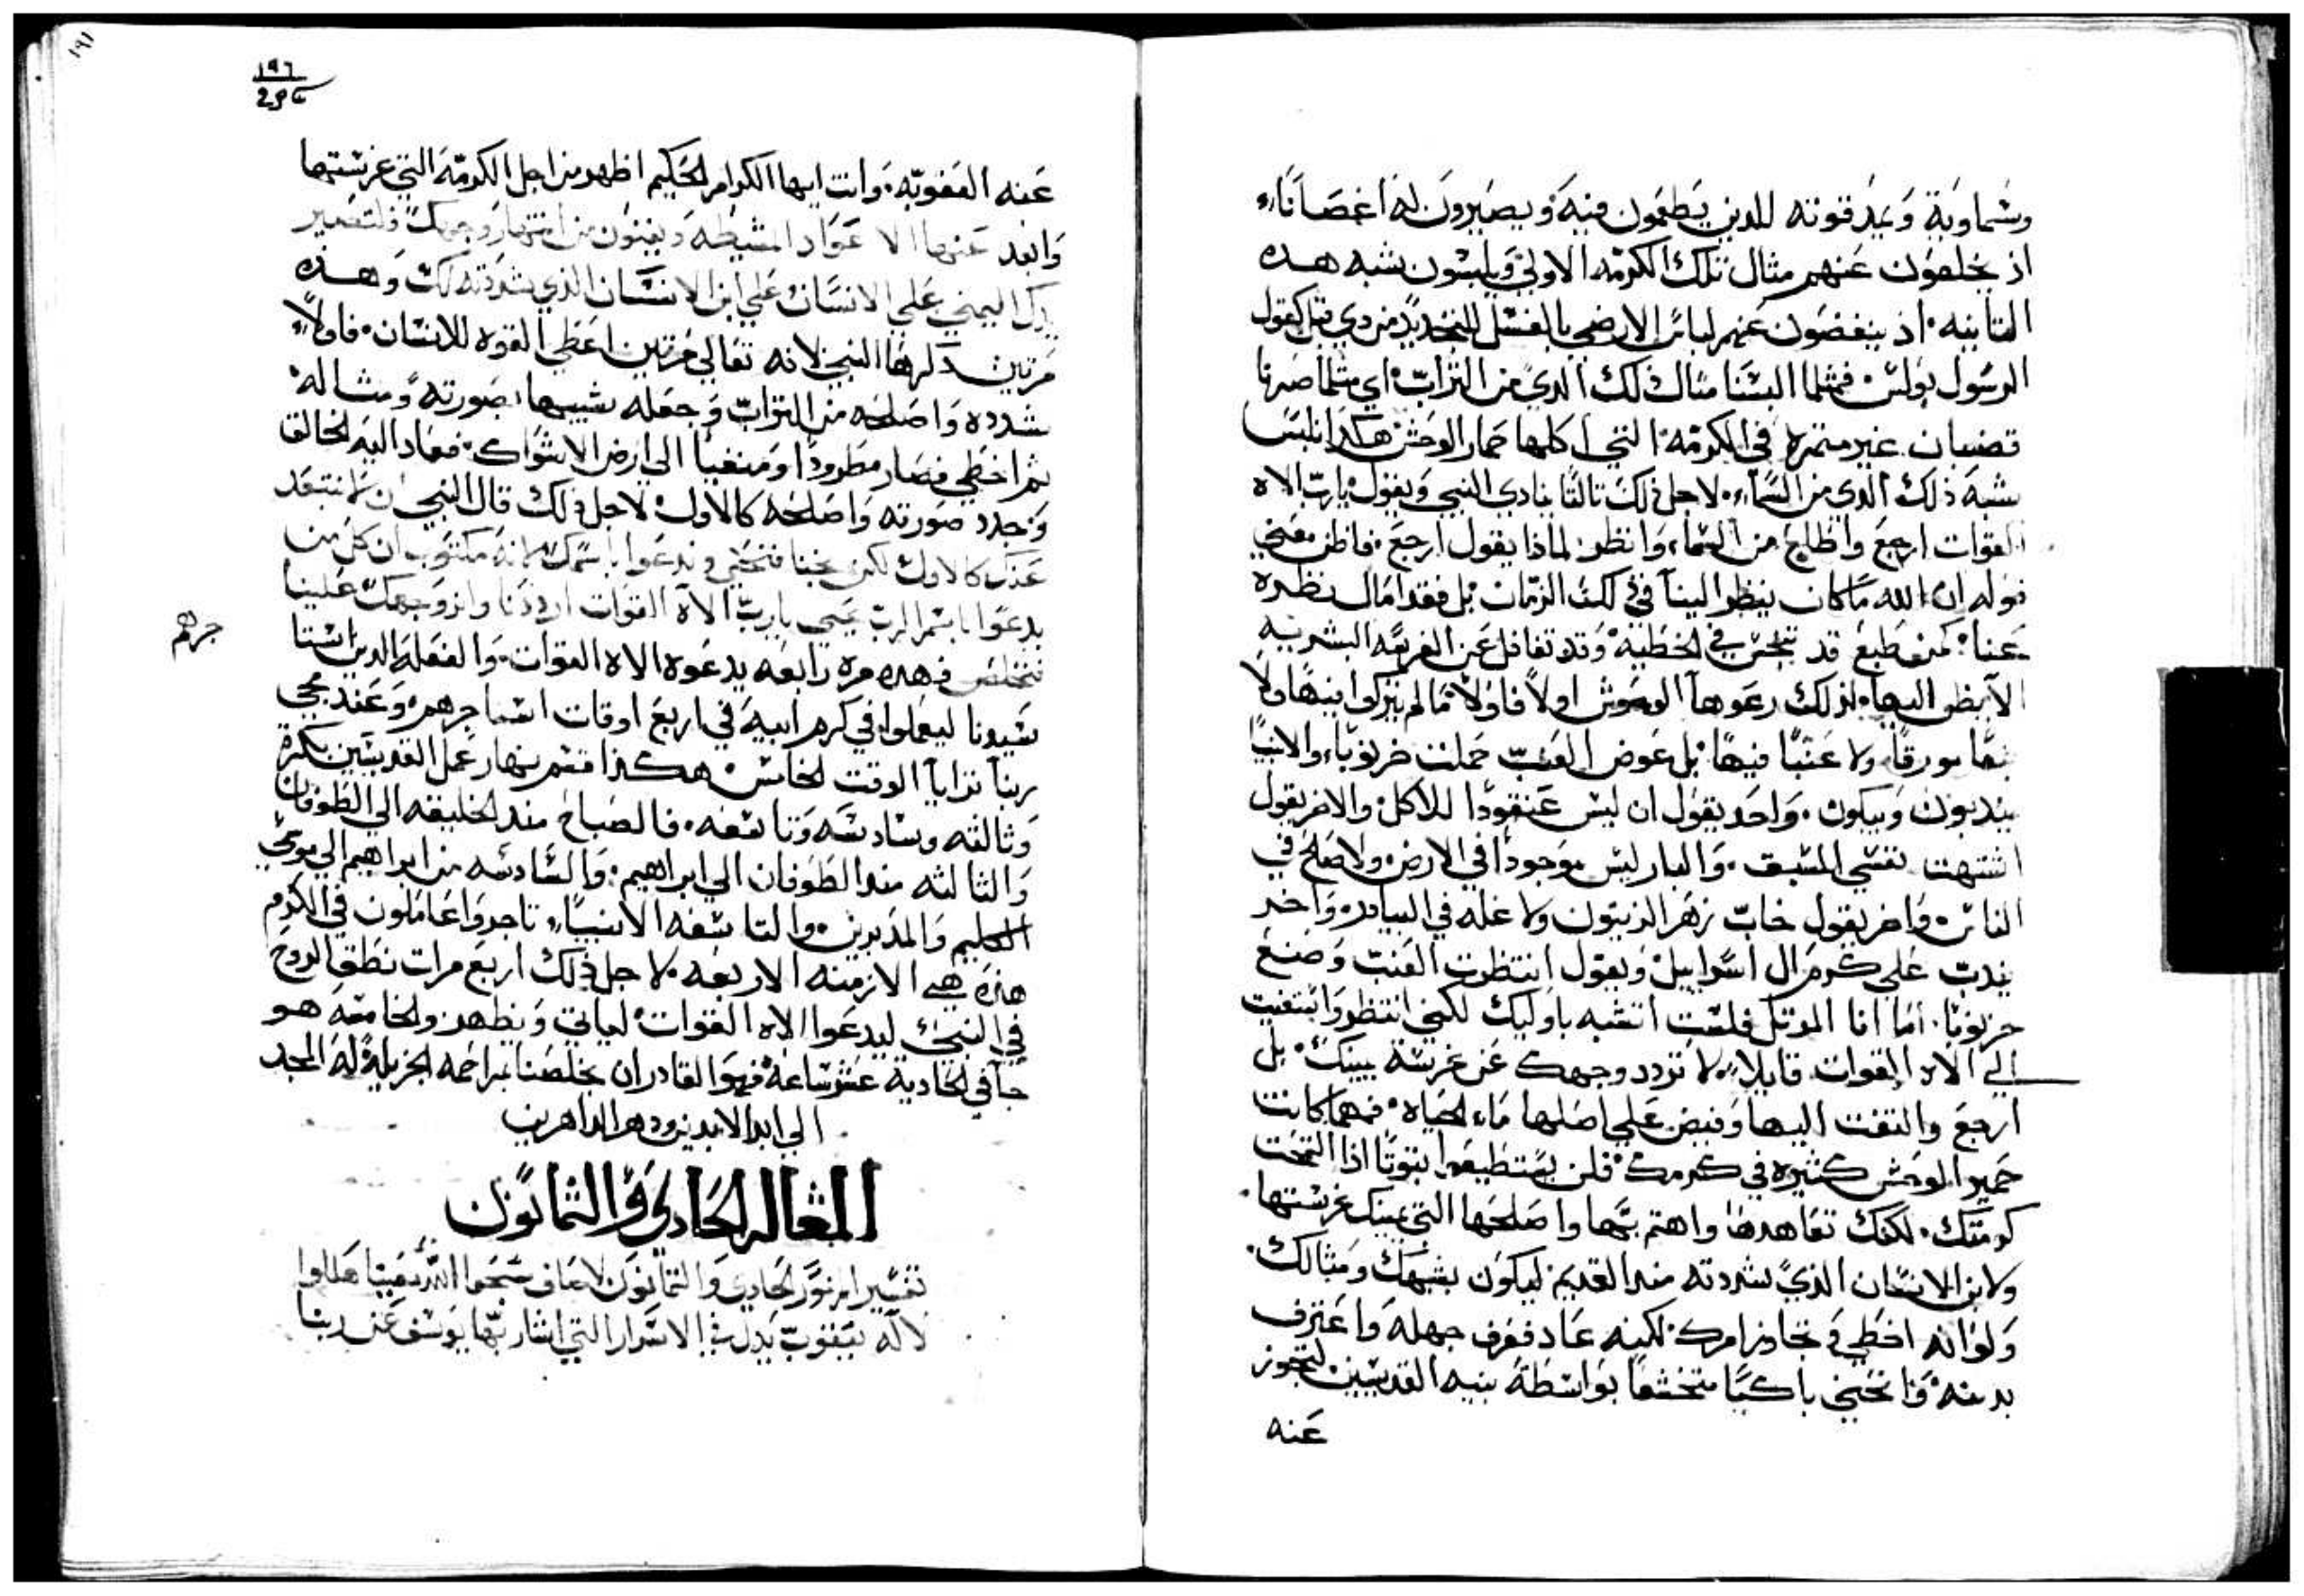 وسماوية وعيد قوته للدين يطعمون فيه ويصيرون له اغصانا،
اذ يخلعون عنهم مثال تلك الكرمه الاولي ويلبسون شبه هده
التانيه. اذ ينفضون عنهم لباس الارضي بالغسل للتجديد من دي قبل كقول
الرسول بولس فمثلما البسنا مثال دلك الدي من التراب اي مثلما صرنا
قضبان غير متمره في الكرمة التي اكلها حمار الوحش هكدا نلبس
شبه ذلك الدي من السماء. لاجل ذلك تالتا ينادي النبي ويقول يا رب الاه
القوات ارجع واطلع من السماء، وانظر لماذا يقول ارجع. فاظن معني
قوله ان الله ما كان ينظر الينا في دلك الزمان بل فقد امال نظره
عنا. كمن طبع قد تنجس في الخطية وقد تغافل عن الفريقه البشريه
لا ينظر اليها. لذلك رعوها الوحوش اولا فاولا ما لم يتركوا بنيها ولا
بها ورقا ولا عنبا فيها بل عوض العنب حملت خرنوبا، والانبيا
يندبون ويبكون. واحد يقول ان ليس عنقودا للاكل والاخر يقول
اشتهت نفسي المسبق. والبار ليس موجودا في الارض ولا صالح في
الناس واخر يقول خاب زهر الزيتون ولا غله في البيادر واخر
يندب علي كرم ال اسراييل ويقول انتظرت العنب وصنع
خرنوبا. اما انا المرتل فلست اتشبه باوليك لكني انتظر وابتغيت
الي الاه القوات قايلا، لا تردد وجهك عن غرسة يمينك. بل
ارجع والتفت اليها وفيض علي اصلها ماء الحياه. فمهما كانت
حمير الوحش كثيره في كرمك فلن يستطيعوا يتوتا اذا التمحت
كرمتك. لكنك تعاهدها واهتم بها واصلحها التي يمينك غرستها.
ولابن الانسان الذي شددته مند القديم ليكون بشبهك ومثالك.
ولو انه اخطي وتجاوز امرك لكنه عاد فعرف جهله واعترف
بدنبه وانحني باكيا متخشعا بواسطة بنيه القديسين لتجوز
عنه
١٩١
١٩٦
عنه العقوبه. وانت ايها الكرام الحكيم اظهر من اجل الكرمة التي غرستها
وابعد عنها الاعواد المشيطه ويفنون من انتهار وجهك ولتصير
يدك اليمني علي الانسان علي ابن الانسان الذي شددته لك وهده
مرتين دكرها النبي لانه تعالي مرتين اعطي القوه للانسان. فاولا،
شدده واصلحه من التراب وجعله شبيها بصورته ومثاله.
ثم اخطي فصار مطرودا ومنفيا الي ارض الاشواك. فعاد اليه الخالق
وجدد صورته واصلحه كالاول لاجل ذلك قال النبي ان لا نبتعد
عنك كالاول لكن نجنا فنحيي وندعوا باسمك لانه مكتوب ان كل من
يدعوا باسم الرب يحيي يا رب الاه القوات ارددنا وانر وجهك علينا
فنخلص فهده مره رابعه يدعوه الاه القوات. والفعله الدين استا
جرهم
سيدنا ليعملوا في كرم ابيه في اربع اوقات استاجرهم. وعند مجي
ربنا ترايا الوقت الخامس هكذا قسم نهار عمل القديسين بكرة
وثالثه وسادسه وتاسعه. فالصباح مند الخليقه الي الطوفان
والثالثه مند الطوفان الي ابراهيم. والسادسه من ابراهيم الي موسي
الكليم والمدبرين. والتاسعه الانبياء تاجروا عاملون في الكرم
هذه هي الازمنه الاربعه. لاجل ذلك اربع مرات نطق الروح
في النبي ليدعوا الاه القوات لياتي ويظهر والخامسه هو
جا في الحادية عشر ساعة فهو القادر ان يخلصنا بمراحمه الجزيلة له المجد
الي ابد الابدين ودهر الداهرين
المقاله الحادي والثمانون
تفسير المزمور الحادي والثمانون لاساف سبحوا الله معينا هللوا
لاله يعقوب يدل في الاسرار التي اشار بها يوسف عن ربنا